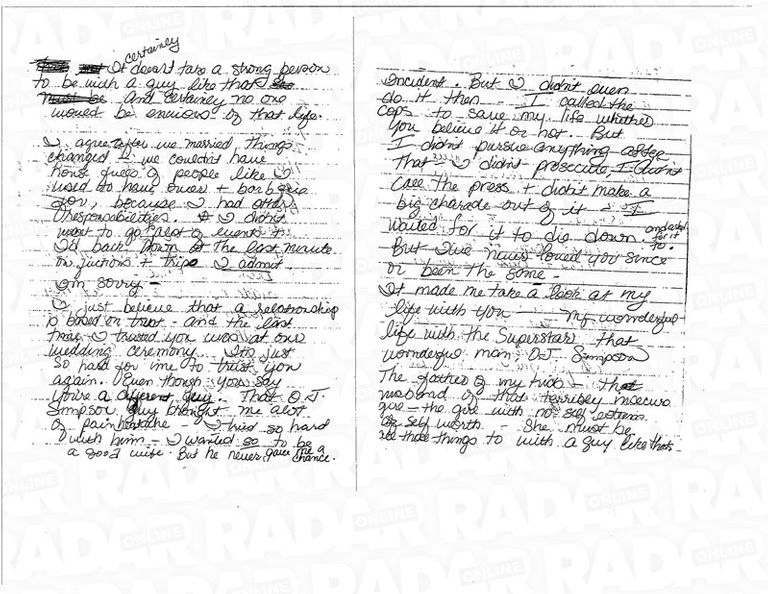 certainly
It doesn't take a strong person
to be with a guy like that
must be and certainly no one
would be envious of that life.
I agree after we married things
changed - we couldn't have
house fuls of people like I
used to have over + barbque
for, because I had other
responsibilities. I didn't
want to go to alot of events +
I'd back down at the last minute
on fuctions + trips I admit
I'm sorry -
I just believe that a relationship
is based on trust - and the last
time I trusted you was at our
wedding ceremony. It's just
so hard for me to trust you
again. Even though you say
you're a different guy. That O.J.
Simpson guy brought me alot
of pain heartache - I tried so hard
with him - I wanted so to be
a good wife. But he never gave me a
chance.
incident. But I didn't even
do it then - I called the
cops to save my life whether
you believe it or not. But
I didn't pursue anything after
that - I didn't prosecute, I didn't
call the press + didn't make a
big charade out of it I
waited for it to die down. and asked
for it
to.
But I've never loved you since
or been the same -
It made me take a look at my
life with you — my wonderful
life with the superstar that
wonderful man, O.J. Simpson
The father of my kids - that
husband of that terribly insecure
girl - the girl with no self esteem
or self worth - She must be
all those things to with a guy like that.
RADAR
ONLINE